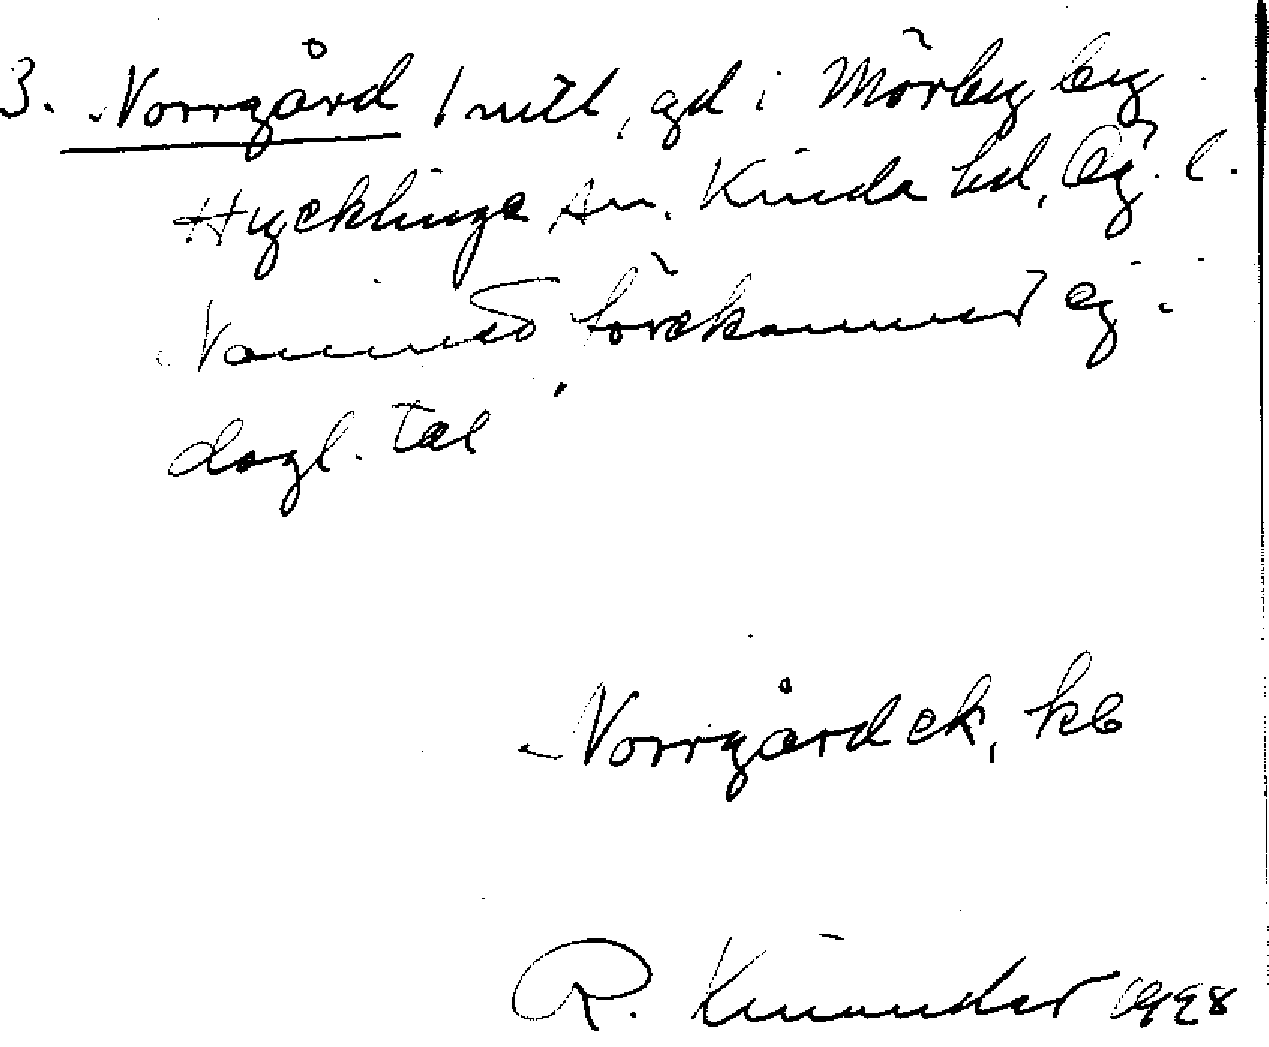 3. Norrgård 1 mtl, gd i Mörby by
Hycklinge sn. Kinda hd, Ög. l.
Namnet förekommer ej i
dagl. tal
Norrgård ek, kb
R. Kinander 1928